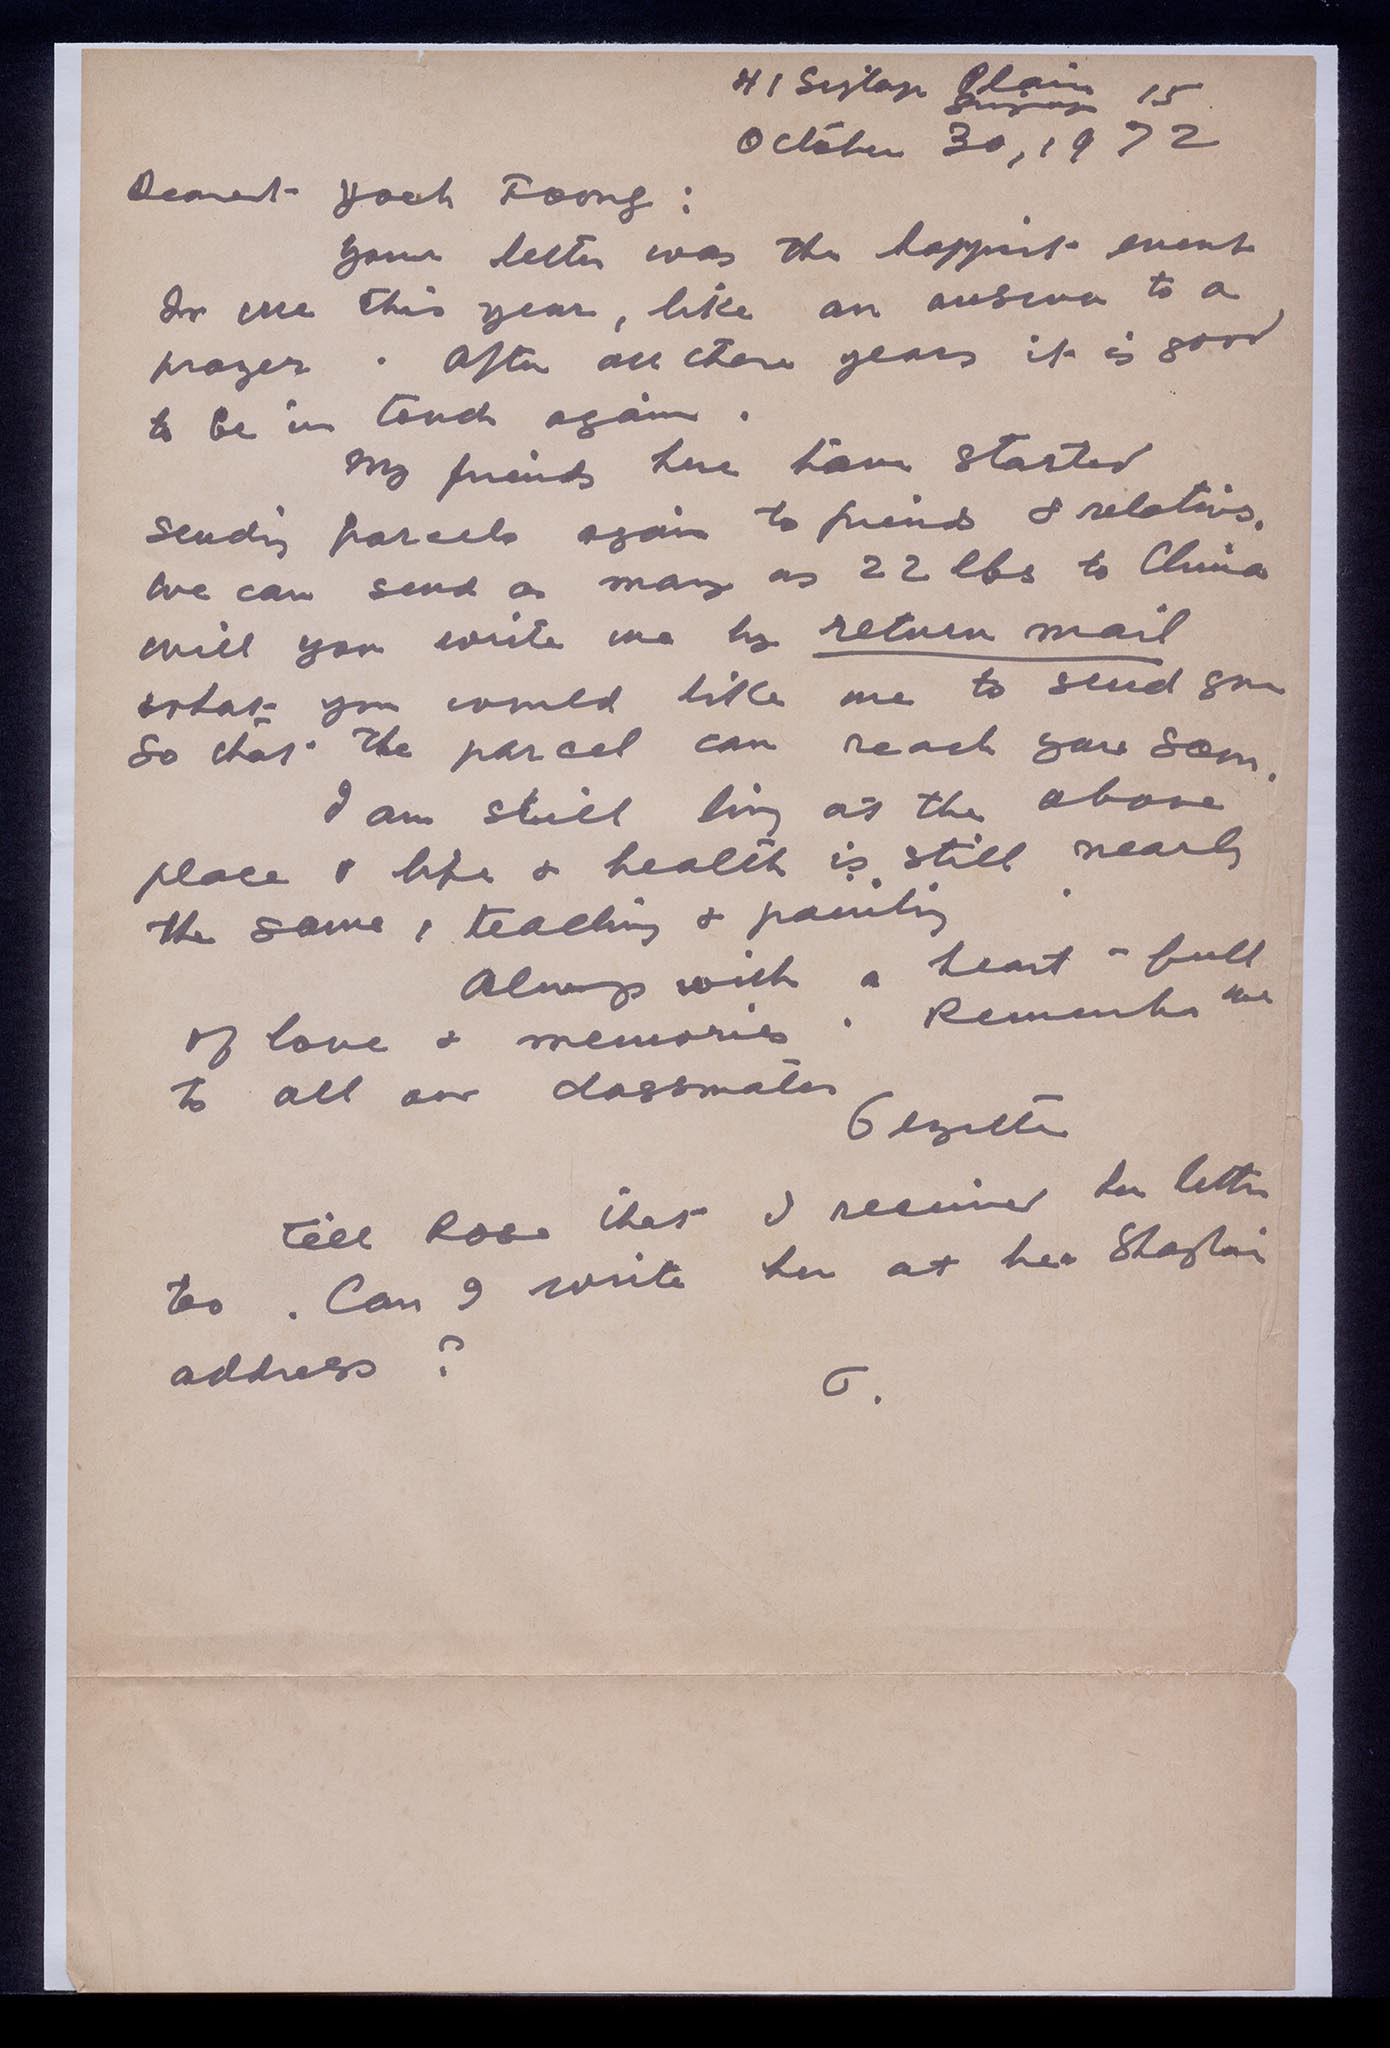 41 Siglap Plain 15
October 30, 1972
Dearest Yoeh Foong :
Your letter was the happiest event
for me this year, like an answer to a
prayer . After all these years it is good
to be in touch again .
My friends here have started
sending parcels again to friends & relatives.
We can send as many as 22 lbs to China
Will you write me by return mail
what you would like me to send you
so that the parcel can reach you soon.
I am still living at the above
place & life & health is still nearly
the same , teaching & painting
Always with a heart - full
of love & memories . Remember me
to all our classmates
Tell Rose that I received her letter
too . Can I write her at her
address ?
G.